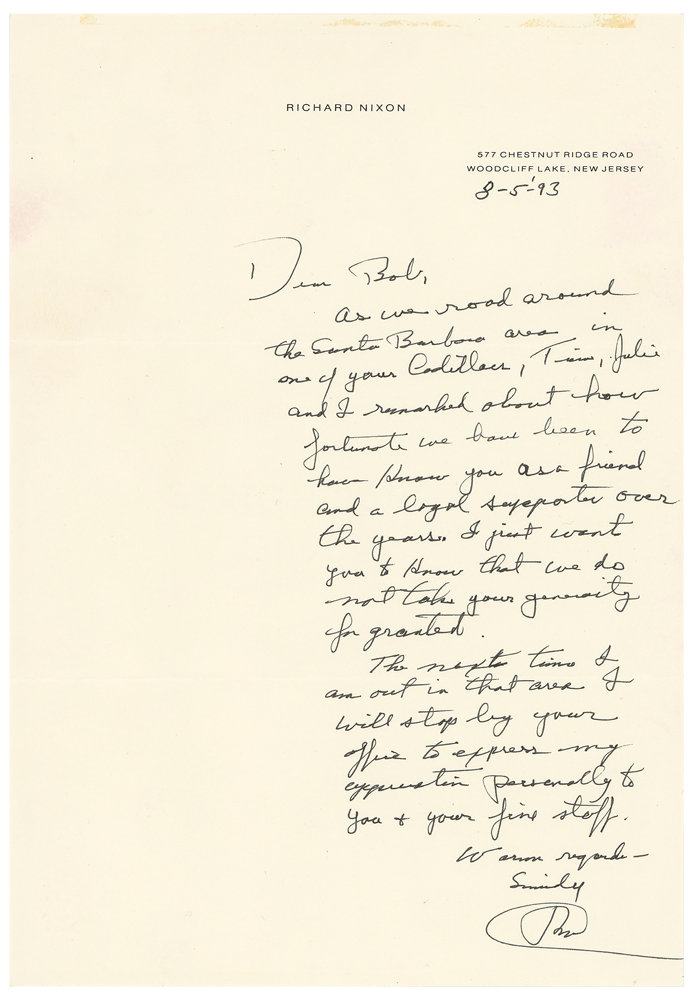 RICHARD NIXON
577 CHESTNUT RIDGE ROAD
WOODCLIFF LAKE, NEW JERSEY
8-5-'93
Dear Bob,
As we road around
the Santa Barbara area in
one of your Cadillacs, Julie
and I remarked about how
fortunate we have been to
have know you as a friend
and a loyal supporter over
the years. I just want
you to know that we do
not take your generosity
for granted.
The next time I
am out in that area I
will stop by your
office to express my
appreciation personally to
you + your fine staff.
Warm regards -
Sincerely
RN